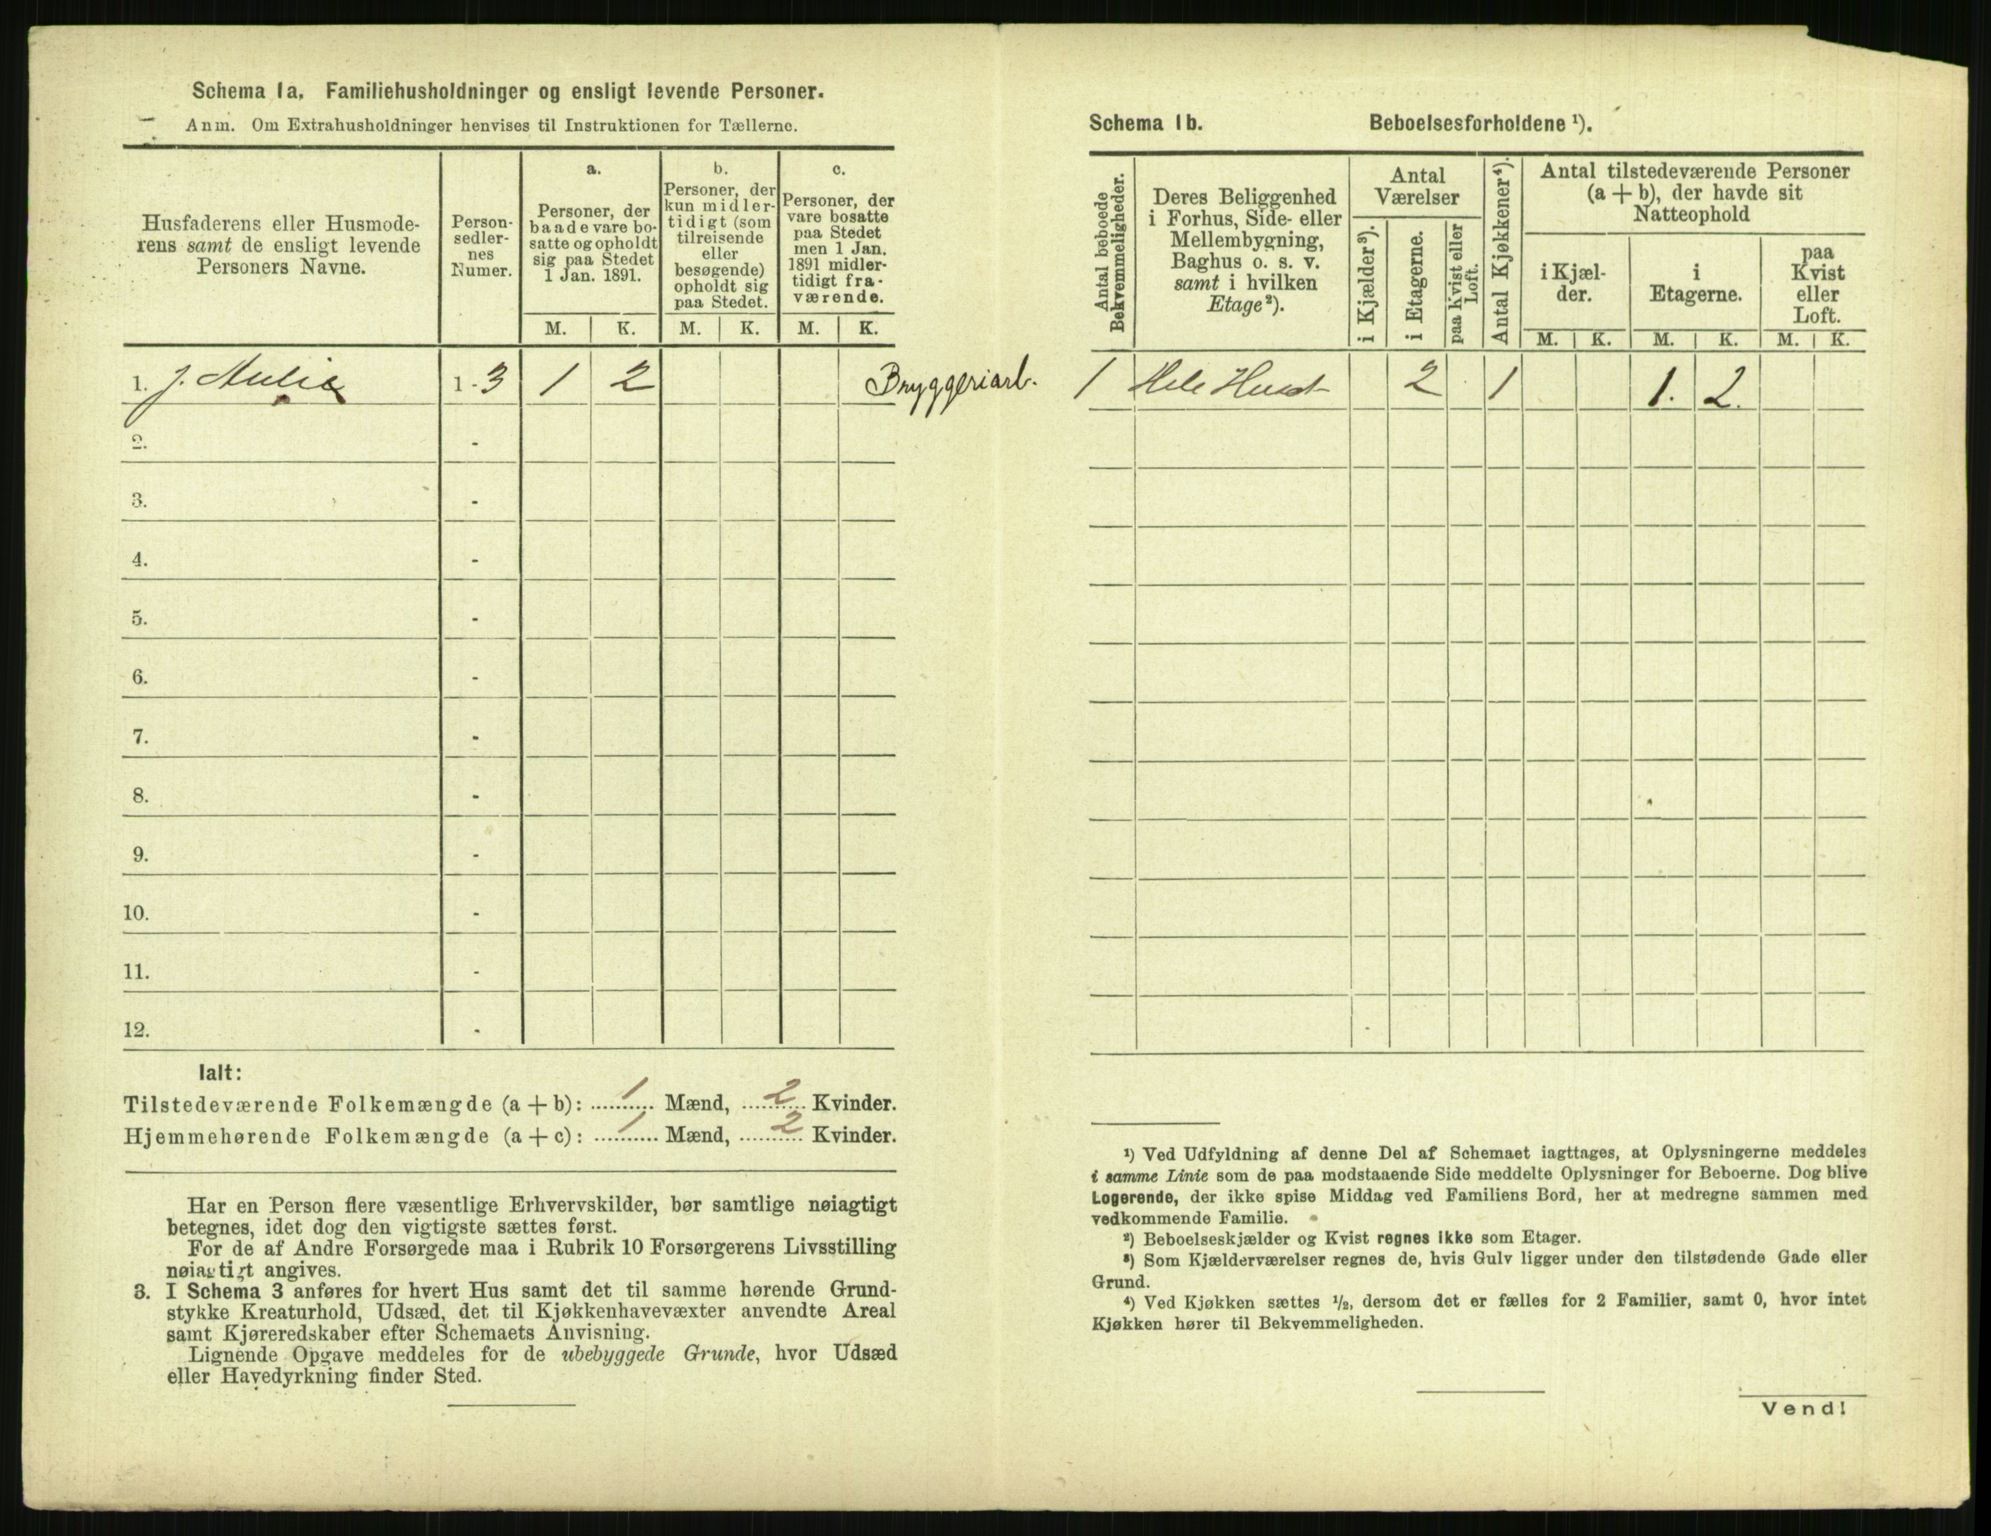 Schema 1a. Familiehusholdninger og ensligt levende Personer.
Anm. Om Extrahusholdninger henvises til Instruktionen for Tællerne.
Husfaderens eller Husmode-
rens samt de ensligt levende
Personers Navne.
Person-
sedler-
nes
Numer.
a.
Personer, der
baade vare bo-
satte og opholdt
sig paa Stedet
1 Jan. 1891.
b.
Personer, der
kun midler-
tidigt (som
tilreisende
eller
besøgende)
opholdt sig
paa Stedet.
c.
Personer, der
vare bosatte
paa Stedet
men 1 Jan.
1891 midler-
tidigt fra-
værende.
M. K. M. K. M. K.
1. J. 1 - 3 1 2 Bryggeriarb.
2. -
3. -
4. -
5. -
6. -
7. -
8. -
9. -
10. -
11. -
12. -
Ialt:
Tilstedeværende Folkemængde (a + b): 1 Mænd, 2 Kvinder.
Hjemmehørende Folkemængde (a + c): 1 Mænd, 2 Kvinder.
Har en Person flere væsentlige Erhvervskilder, bør samtlige nøiagtigt
betegnes, idet dog den vigtigste sættes først.
For de af Andre Forsørgede maa i Rubrik 10 Forsørgerens Livsstilling
nøiagtigt angives.
3. I Schema 3 anføres for hvert Hus samt det til samme hørende Grund-
stykke Kreaturhold, Udsæd, det til Kjøkkenhavevæxter anvendte Areal
samt Kjøreredskaber efter Schemaets Anvisning.
Lignende Opgave meddeles for de ubebyggede Grunde, hvor Udsæd
eller Havedyrkning finder Sted.
Schema 1b. Beboelsesforholdene ¹).
Antal beboede
Bekvemmeligheder.
Deres Beliggenhed
i Forhus, Side- eller
Mellembygning,
Baghus o. s. v.
samt i hvilken
Etage²).
Antal
Værelser
i Kjælder³).
i Etagerne.
paa Kvist eller
Loft.
Antal Kjøkkener⁴).
Antal tilstedeværende Personer
(a + b), der havde sit
Natteophold
i Kjæl-
der.
i
Etagerne.
paa
Kvist
eller
Loft.
M. K. M. K. M. K.
1 Hele Huset 2 1 1. 2.
¹) Ved Udfyldning af denne Del af Schemaet iagttages, at Oplysningerne meddeles
i samme Linie som de paa modstaaende Side meddelte Oplysninger for Beboerne. Dog blive
Logerende, der ikke spise Middag ved Familiens Bord, her at medregne sammen med
vedkommende Familie.
²) Beboelseskjælder og Kvist regnes ikke som Etager.
³) Som Kjælderværelser regnes de, hvis Gulv ligger under den tilstødende Gade eller
Grund.
⁴) Ved Kjøkken sættes ½, dersom det er fælles for 2 Familier, samt 0, hvor intet
Kjøkken hører til Bekvemmeligheden.
Vend!